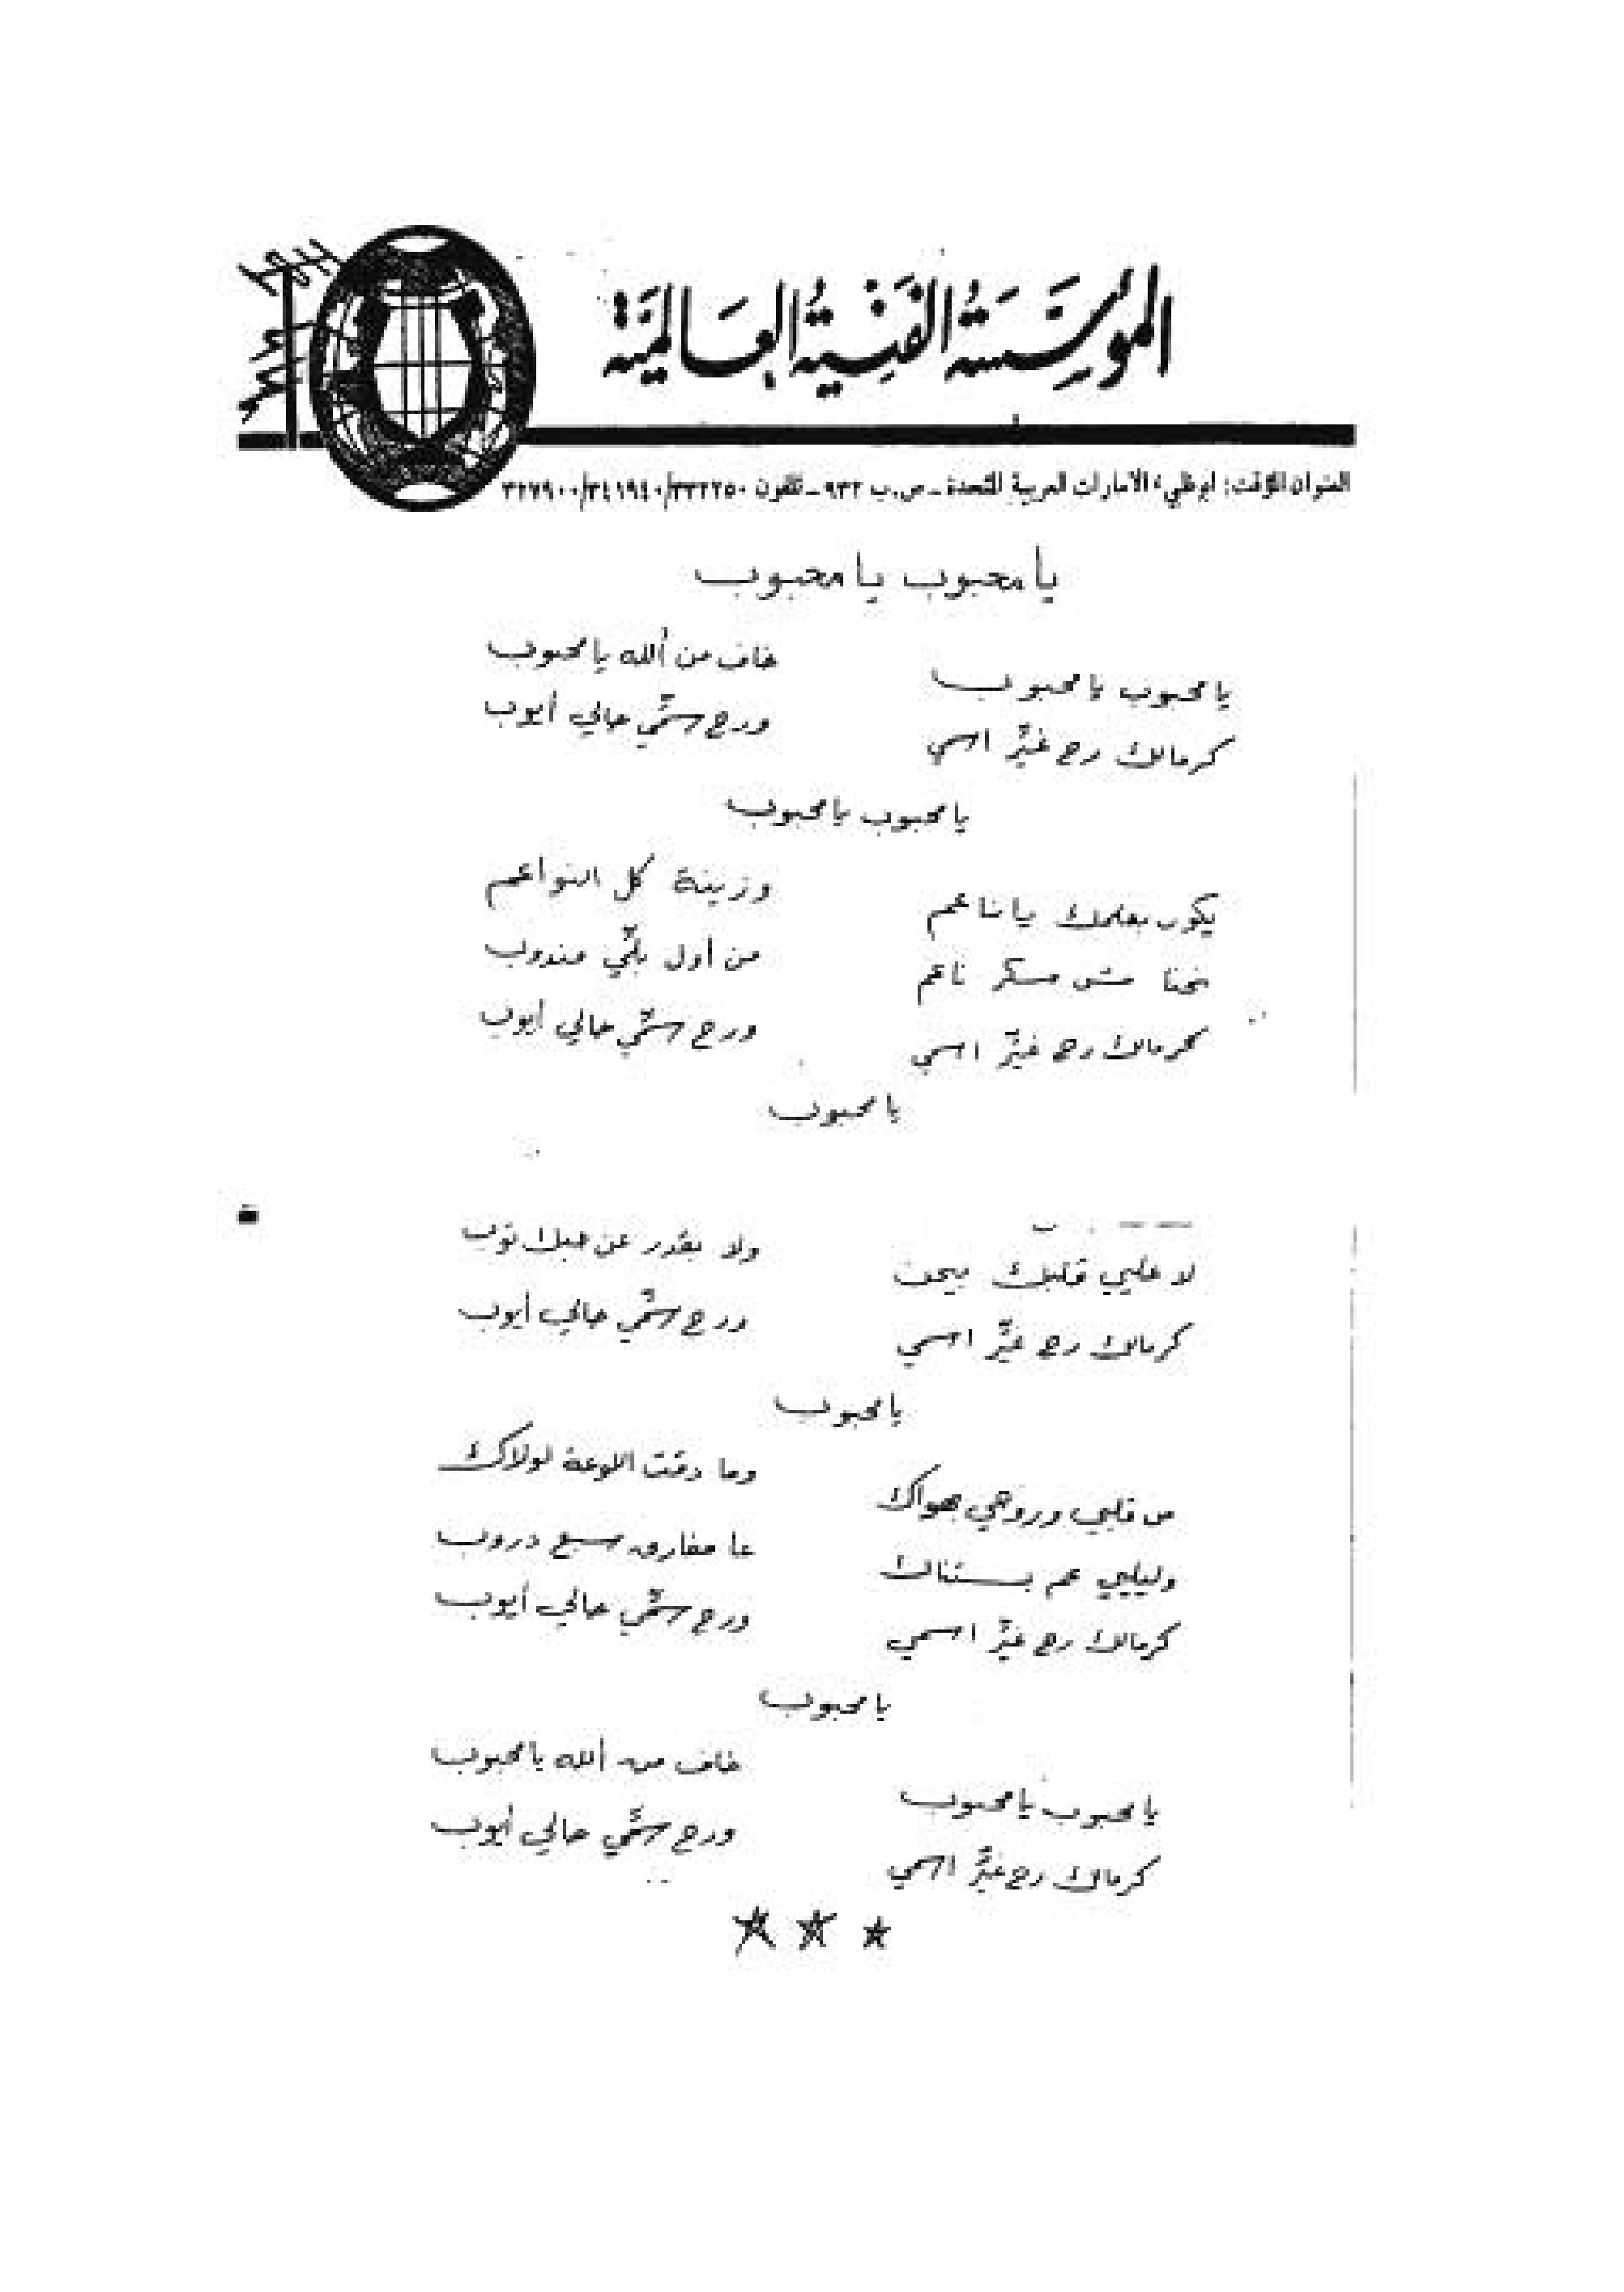 المؤسسة الفنية العالمية
العنوان المؤقت: ابوظبي، الامارات العربية المتحدة - ص.ب ٩٣٢ - تلفون ٣٣٢٢٥٠/٣٤١٩٤٠/٣٢٧٩٠٠
يا محبوب يا محبوب
يا محبوب يا محبوب
خاف من ألله يا محبوب
كرمالك رح غيّر اسمي
ورح سمّي حالي أيوب
يا محبوب يا محبوب
يكون بعلمك يا ناعم
وزينة كل النواعم
نحنا مش سكر ناعم
من أول بكّي مندوب
كرمالك رح غيّر اسمي
ورح سمّي حالي أيوب
يا محبوب
لا عليي قلبك بيحن
ولا بقدر عن حبك توب
كرمالك رح غيّر اسمي
ورح سمّي حالي أيوب
يا محبوب
من قلبي وروحي بهواك
وما دقت اللوعة لولاك
وليليي عم بستناك
عا مفارق سبع دروب
كرمالك رح غيّر اسمي
ورح سمّي حالي أيوب
يا محبوب
يا محبوب يا محبوب
خاف من ألله يا محبوب
كرمالك رح غيّر اسمي
ورح سمّي حالي أيوب